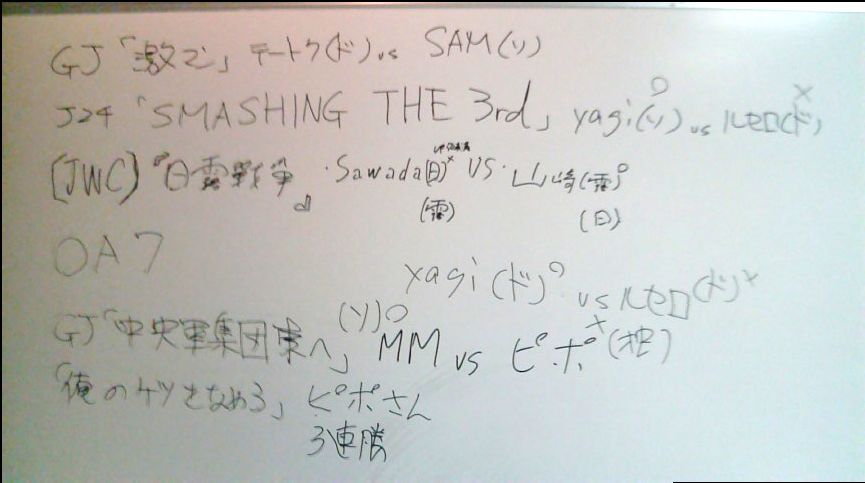 GJ「激マ」テートク(ド) vs SAM(ソ)
J24「SMASHING THE 3rd」yagi(ソ)○ vs ルセロ(ド)×
(JWC)『日露戦争』・Sawada(日)× VS・山崎(露)○
(露) (日)
OA7 yagi(ド)○ vs ルセロ(ド)×
GJ「中央軍集団東へ」(ソ)○ MM vs ピポ×(独)
「俺のケツをなめろ」ピポさん
3連勝